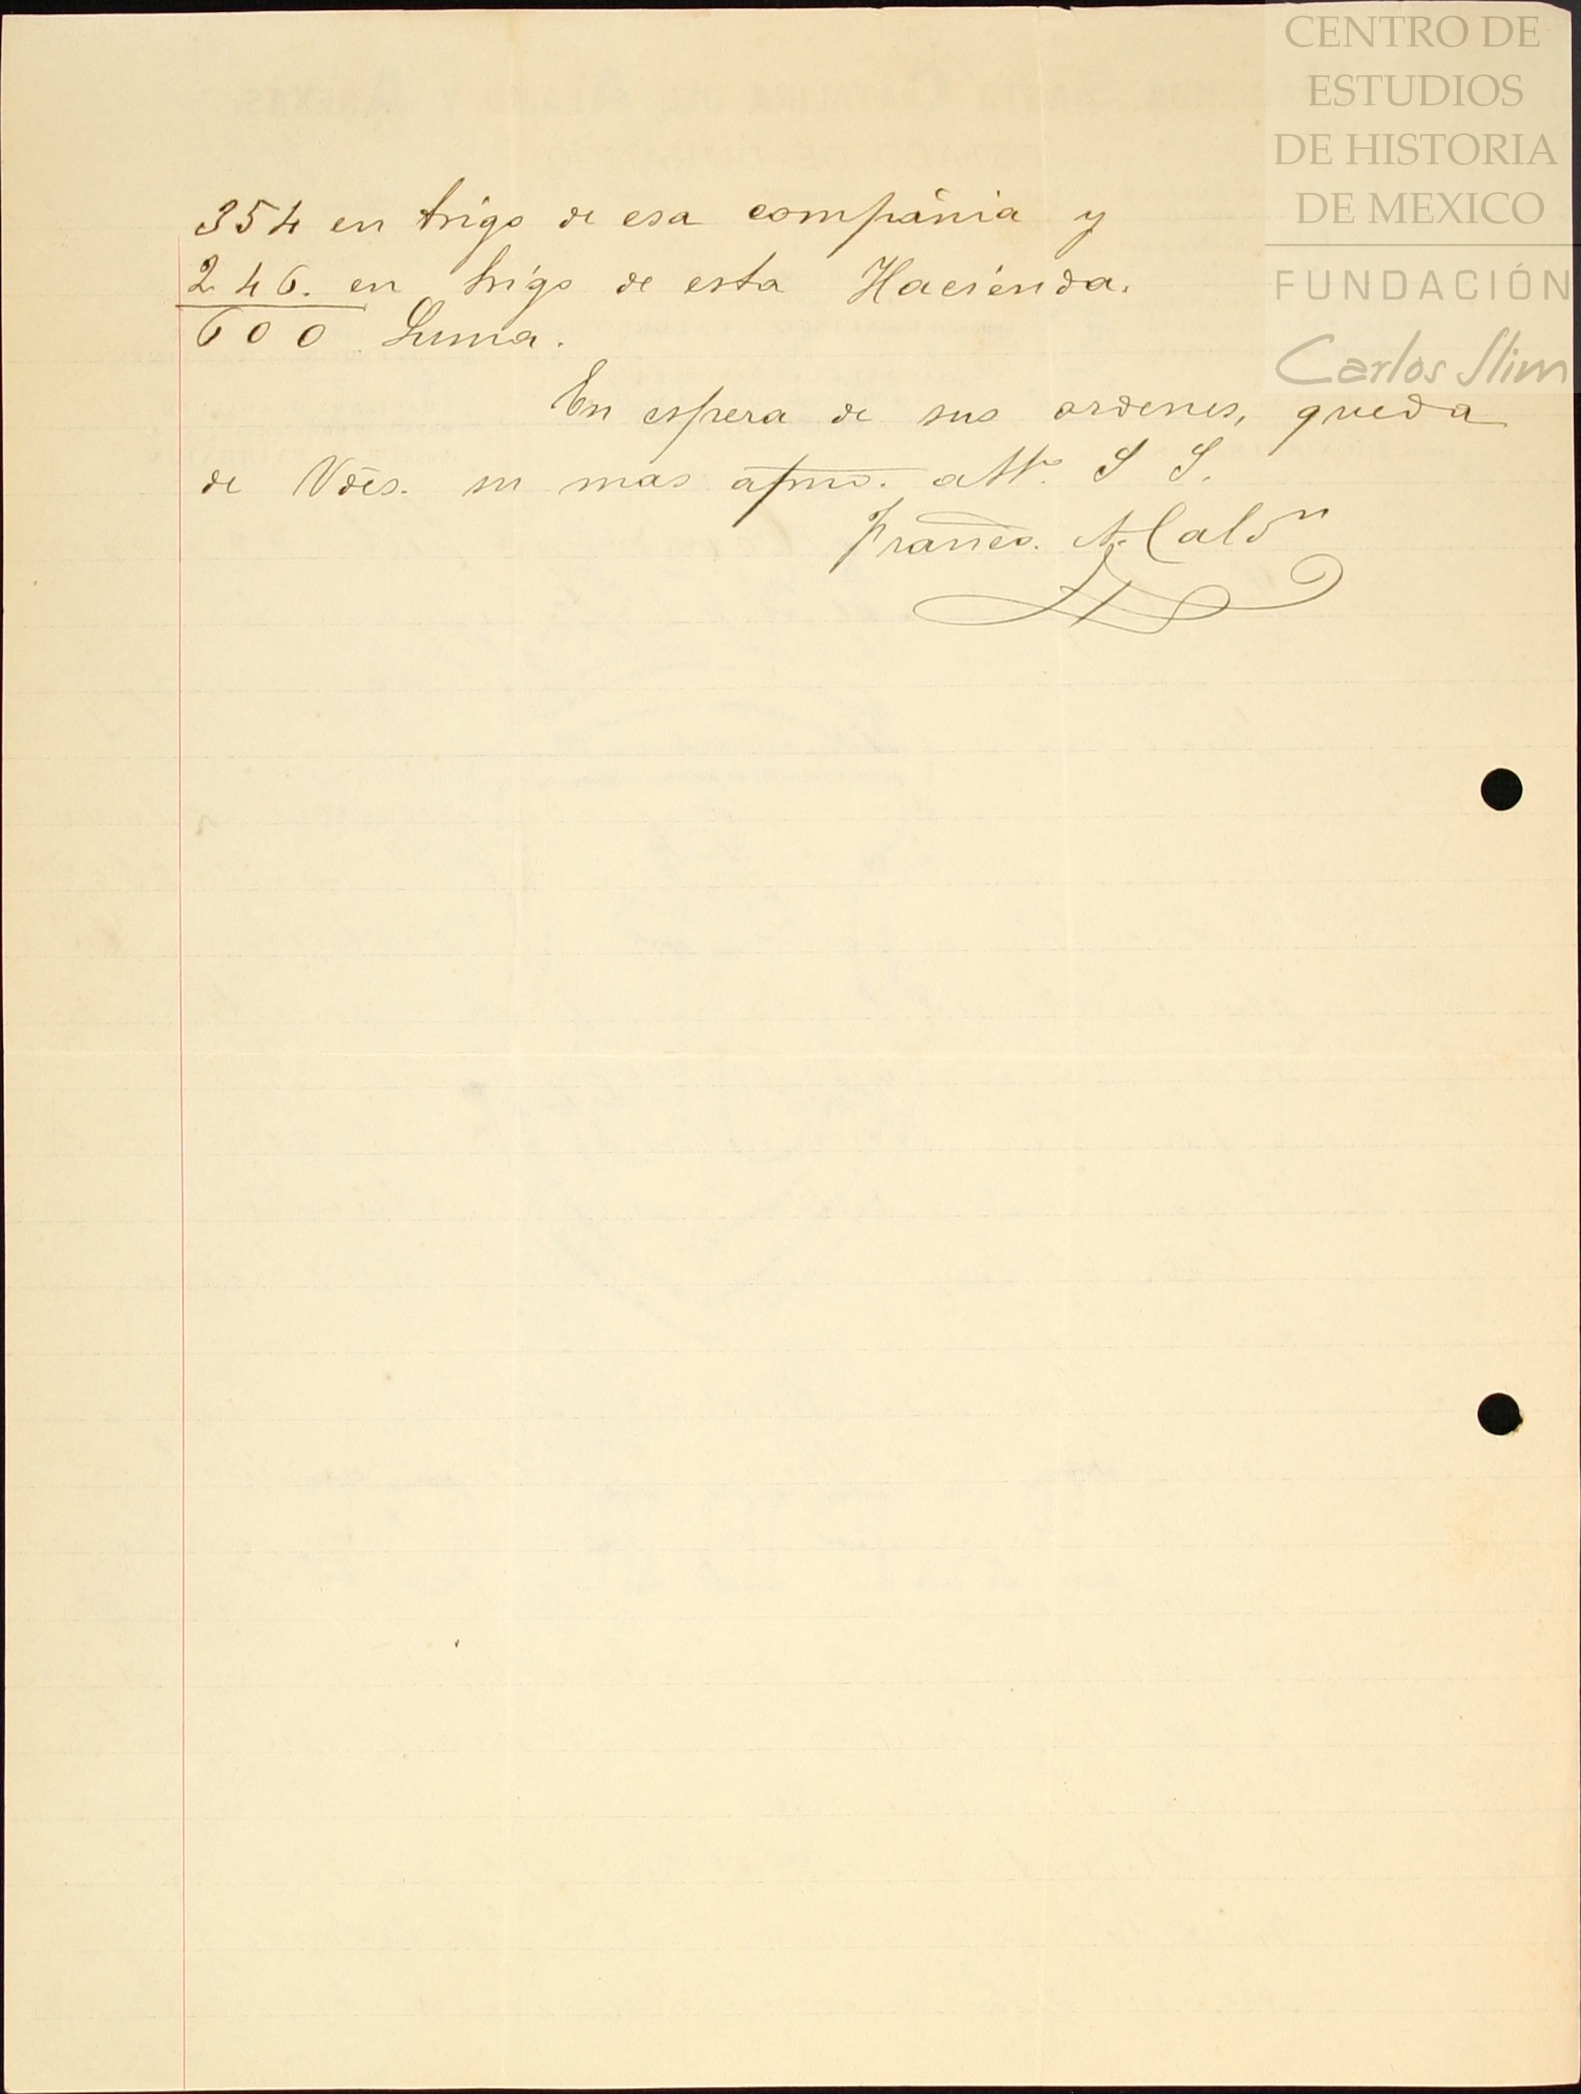 CENTRO DE
ESTUDIOS
DE HISTORIA
DE MEXICO
FUNDACIÓN
Carlos Slim
354 en trigo de esa compánia y
246. en trigo de esta Hacienda.
600 Suma.
En espera de sus ordenes, queda
de Vdes. su mas afmo. atto. S S.
Franco.